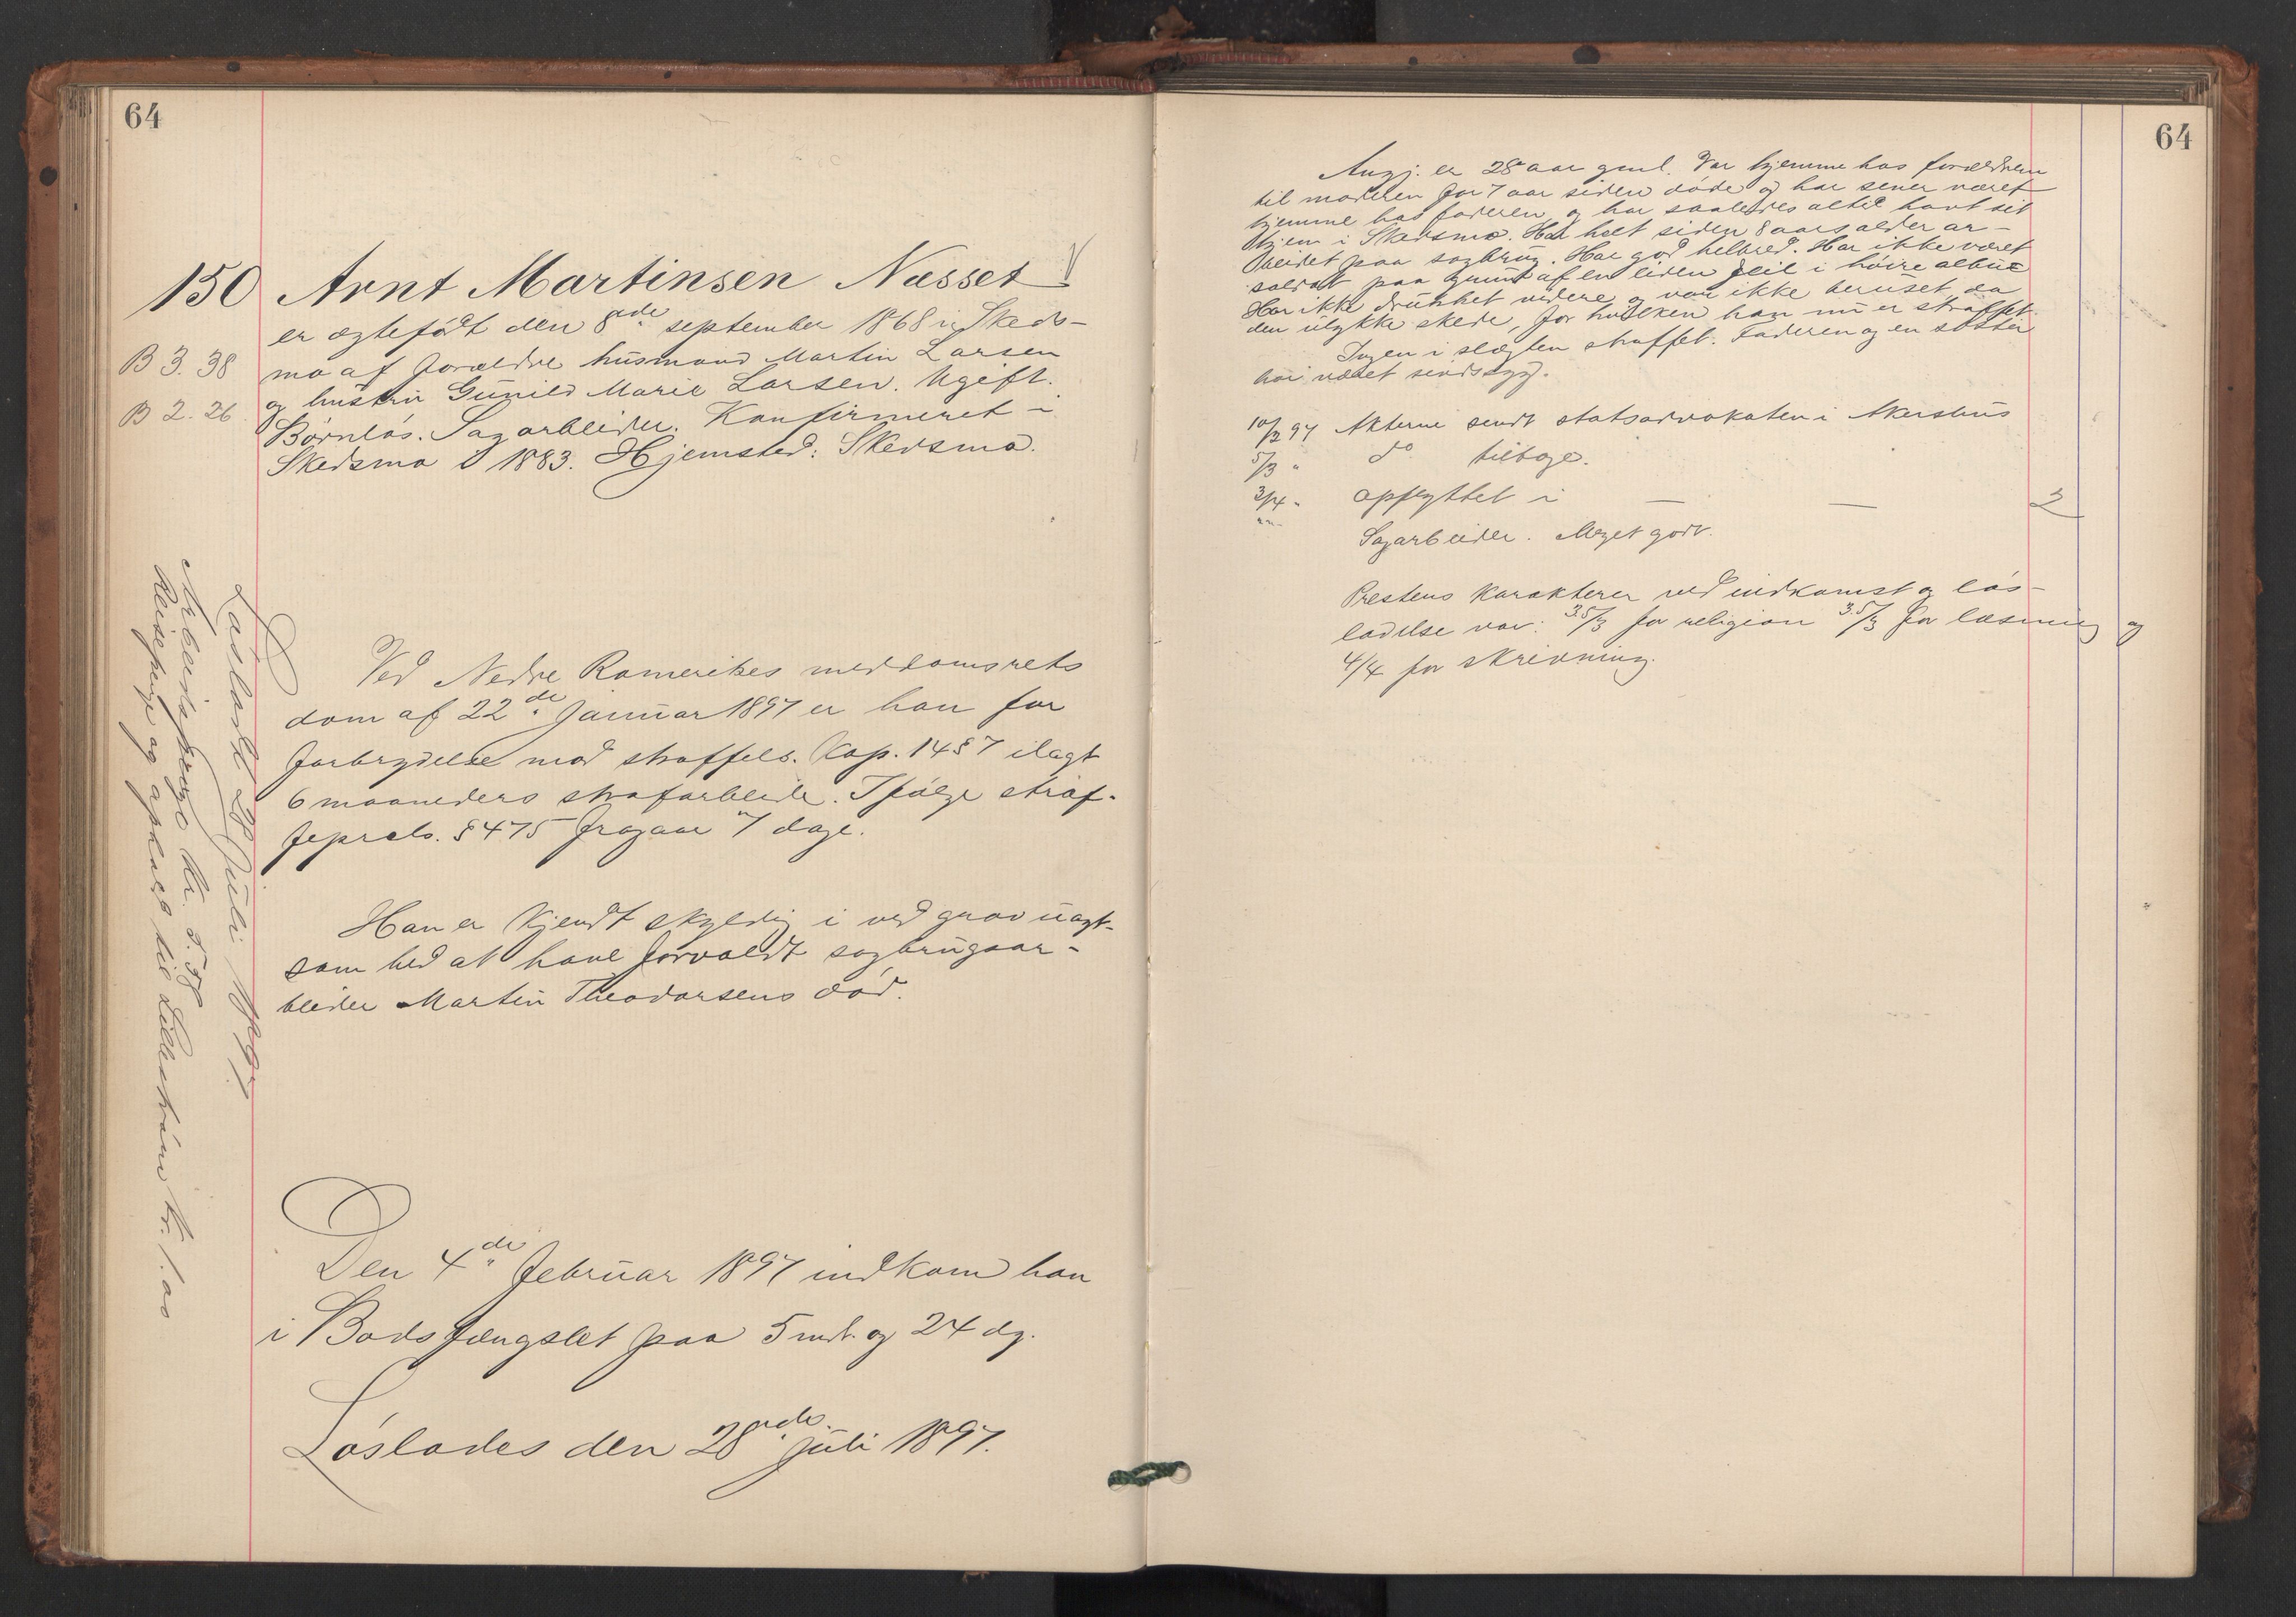 64
150 Arnt Martinsen Næsset
er ægtefødt den 8de september 1868 i Skeds-
B 3. 38 mo af forældre husmand Martin Larsen
og hustru Gunild Marie Larsen. Ugift.
B 2. 26 Børnløs. Sagarbeider. Konfirmeret i
Skedsmo 1883. Hjemsted: Skedsmo.
Ved Nedre Romerikes meddomsrets
dom af 22de januar 1897 er han for
forbrydelse mod straffels. Kap. 14 § 7 ilagt
6 maaneders strafarbeide. Ifølge straf-
feprcls. § 475 fragaar 7 dage.
Han er kjendt skyldig i ved grov uagt-
somhed at have forvoldt sagbrugsar-
beider Martin Theodorsens død.
Den 4de februar 1897 indkom han
i Bodsfængslet paa 5 mdr. og 24 dg.
Løslades den 28de juli 1897.
Løsladt 28 Juli 1897
Arbeidspenge kr. 5.58
Reisepenge og ophold til Lillestrøm kr. 1.00
64
Angj. er 28 aar gml. Var hjemme hos forældrene
til moderen for 7 aar siden døde og har sener været
hjemme hos faderen og har saaledes altid havt sit
hjem i Skedsmo. Har helt siden 8 aars alder ar-
beidet paa sagbrug. Har god helbred. Har ikke været
soldat paa grund af en liden feil i høire albue
Har ikke drukket videre og var ikke beruset da
den ulykke skede, for hvilken han nu er straffet.
Ingen i slægten straffet. Faderen og en søster
har været sindssyg.
10/2 97 Akterne sendt statsadvokaten i Akershus
5/3 " do tilbage.
3/4 " opflyttet i — — 2
Sagarbeider. Meget godt.
Prestens karakterer ved indkomst og løs-
ladelse var: 3.5/3 for religion 3.5/3 for læsning og
4/4 for skrivning.